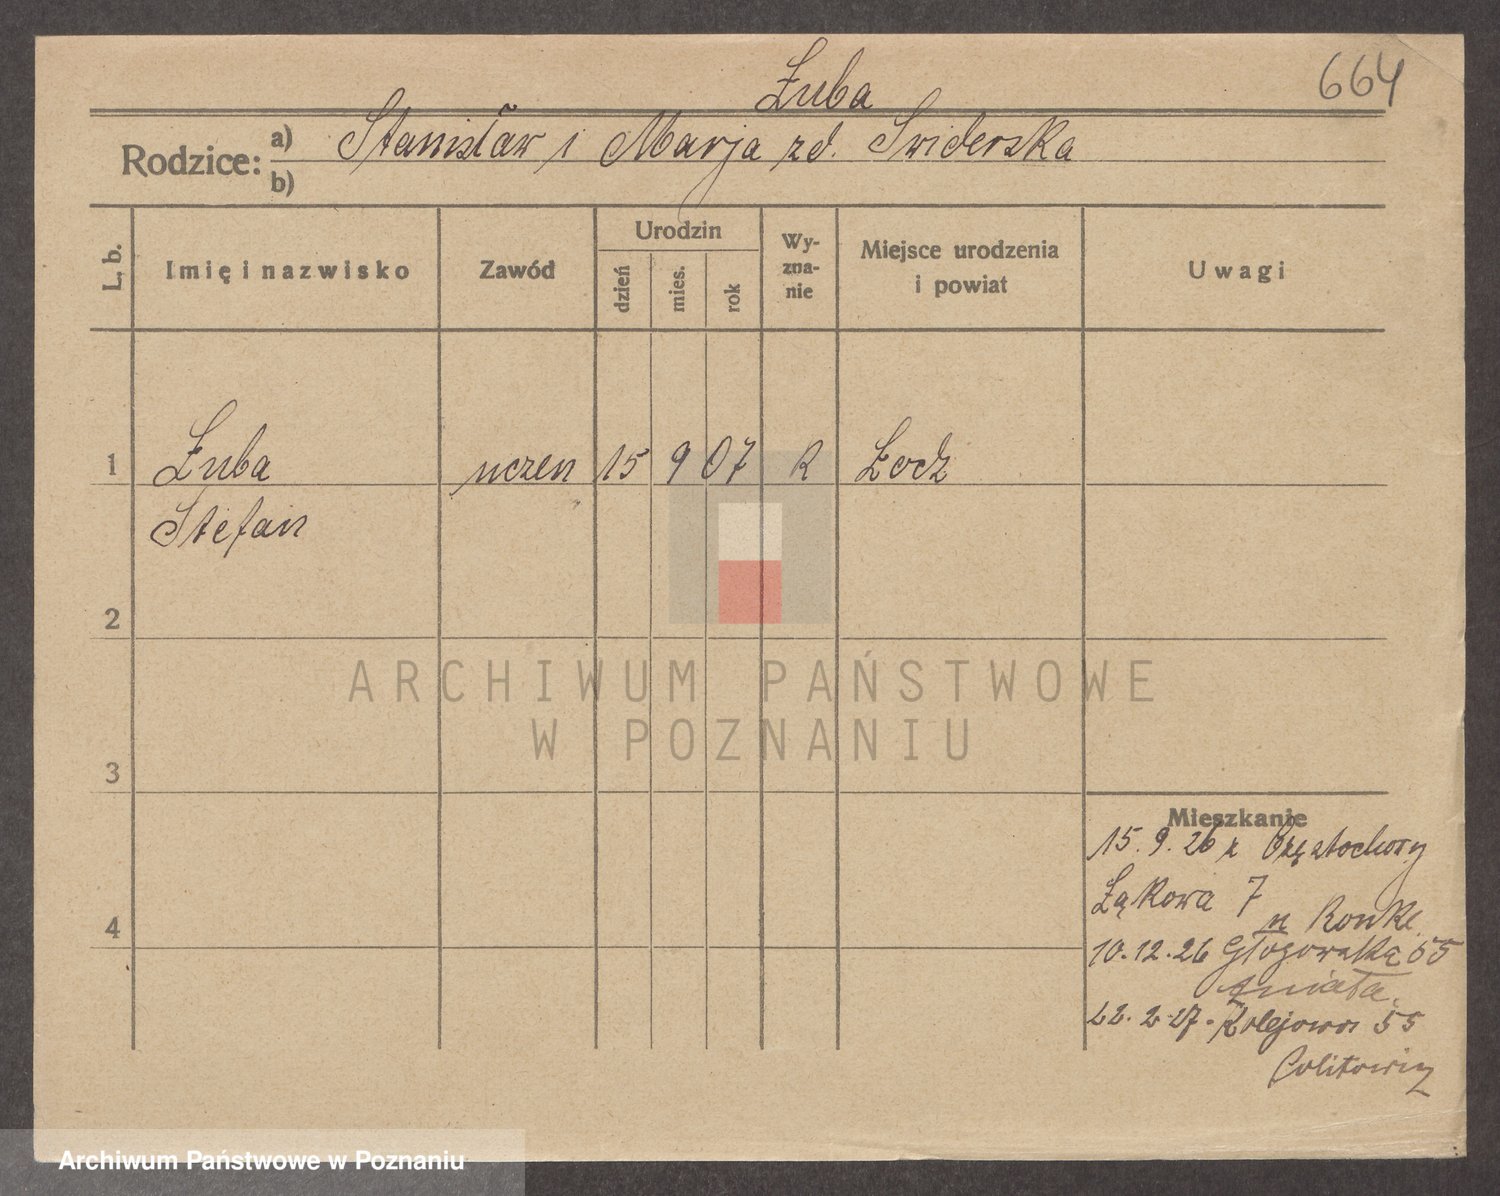 664
Żuba
Rodzice:
a) Stanisław i Marja zd. Swiderska
b)
L. b.
Imię i nazwisko
Zawód
Urodzin
dzień
mies.
rok
Wy-
zna-
nie
Miejsce urodzenia
i powiat
Uwagi
1 Żuba uczen 15 9 07 R Łodz
Stefan
2
3
4
Mieszkanie
15.9.26 z Częstochowy
Łąkowa 7
10.12.26 Głogowska 55
22.2.27. Kolejowa 55
ARCHIWUM PAŃSTWOWE
W POZNANIU
Archiwum Państwowe w Poznaniu